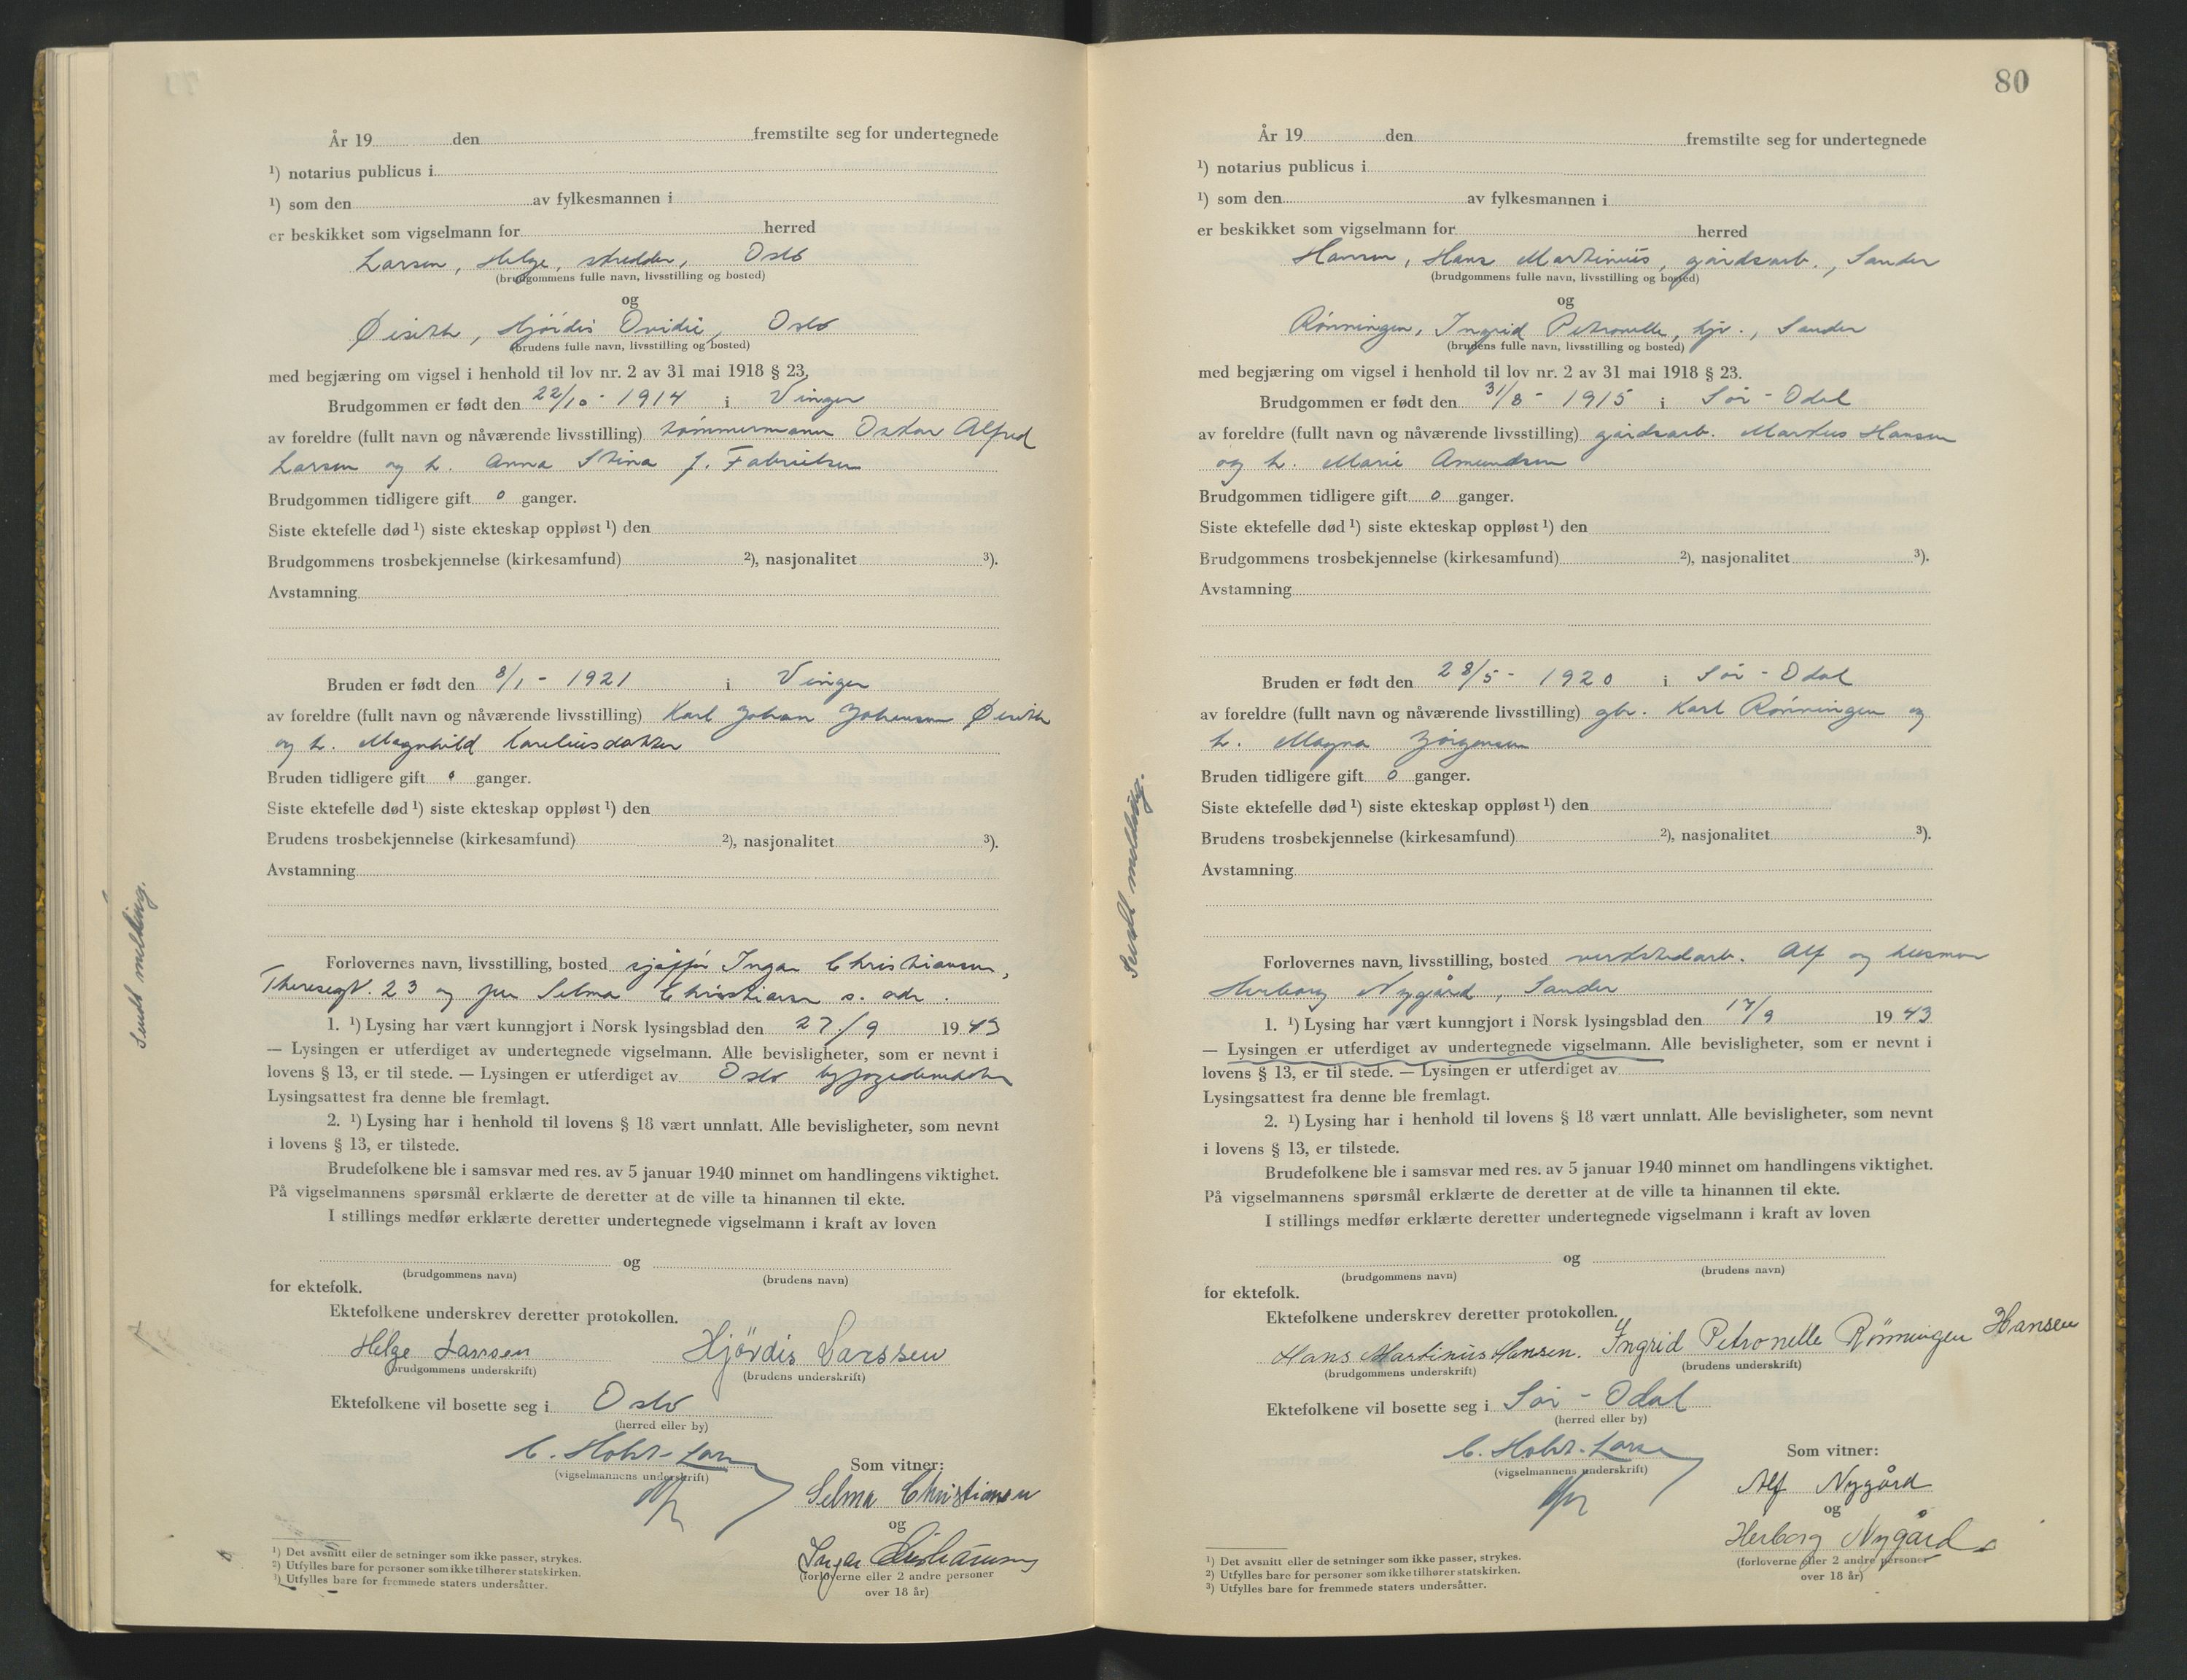 År 19 den fremstilte seg for undertegnede
¹) notarius publicus i
¹) som den av fylkesmannen i
er beskikket som vigselmann for herred
Larsen, Helge, skredder, Oslo
(brudgommens fulle navn, livsstilling og bosted)
og
Øiseth, Hjördis Ovidie, Oslo
(brudens fulle navn, livsstilling og bosted)
med begjæring om vigsel i henhold til lov nr. 2 av 31 mai 1918 § 23.
Brudgommen er født den 22/10 - 1914 i Vinger
av foreldre (fullt navn og nåværende livsstilling) tömmermann Oskar Alfred
Larsen og h. Anna Stina f.
Brudgommen tidligere gift 0 ganger.
Siste ektefelle død ¹) siste ekteskap oppløst ¹) den
Brudgommens trosbekjennelse (kirkesamfund) ²), nasjonalitet ³).
Avstamning
Bruden er født den 8/1 - 1921 i Vinger
av foreldre (fullt navn og nåværende livsstilling) Karl Johan Johansen Øiseth
og h. Magnhild Kareliusdatter
Bruden tidligere gift 0 ganger.
Siste ektefelle død ¹) siste ekteskap oppløst ¹) den
Brudens trosbekjennelse (kirkesamfund) ²), nasjonalitet ³).
Avstamning
Sendt melding.
Forlovernes navn, livsstilling, bosted sjåffór Ingar Christiansen,
Theresegt. 23 og fru Selma Christiansen s. adr.
1. ¹) Lysing har vært kunngjort i Norsk lysingsblad den 27/9 1943
— Lysingen er utferdiget av undertegnede vigselmann. Alle bevisligheter, som er nevnt i
lovens § 13, er til stede. — Lysingen er utferdiget av Oslo byfogedembete
Lysingsattest fra denne ble fremlagt.
2. ¹) Lysing har i henhold til lovens § 18 vært unnlatt. Alle bevisligheter, som nevnt
i lovens § 13, er tilstede.
Brudefolkene ble i samsvar med res. av 5 januar 1940 minnet om handlingens viktighet.
På vigselmannens spørsmål erklærte de deretter at de ville ta hinannen til ekte.
I stillings medfør erklærte deretter undertegnede vigselmann i kraft av loven
og
(brudgommens navn) (brudens navn)
for ektefolk.
Ektefolkene underskrev deretter protokollen.
Helge Larssen Hjördis Larssen
(brudgommens underskrift) (brudens underskrift)
Ektefolkene vil bosette seg i Oslo
(herred eller by)
C. Holst-Larsen
(vigselmannens underskrift)
Som vitner:
Selma Christiansen
og
Ingar Christiansen
(forloverne eller 2 andre personer
over 18 år)
¹) Det avsnitt eller de setninger som ikke passer, strykes.
²) Utfylles bare for personer som ikke tilhører statskirken.
³) Utfylles bare for fremmede staters undersåtter.
80
År 19 den fremstilte seg for undertegnede
¹) notarius publicus i
¹) som den av fylkesmannen i
er beskikket som vigselmann for herred
Hansen, Hans Martinius, gårdsarb., Sander
(brudgommens fulle navn, livsstilling og bosted)
og
Rönningen, Ingrid Petronelle, hjv., Sander
(brudens fulle navn, livsstilling og bosted)
med begjæring om vigsel i henhold til lov nr. 2 av 31 mai 1918 § 23.
Brudgommen er født den 31/8 - 1915 i Sör-Odal
av foreldre (fullt navn og nåværende livsstilling) gårdsarb. Markus Hansen
og h. Marie Amundsen
Brudgommen tidligere gift 0 ganger.
Siste ektefelle død ¹) siste ekteskap oppløst ¹) den
Brudgommens trosbekjennelse (kirkesamfund) ²), nasjonalitet ³).
Avstamning
Bruden er født den 28/5 - 1920 i Sör-Odal
av foreldre (fullt navn og nåværende livsstilling) gbr. Karl Rönningen og
h. Magna Jörgensen
Bruden tidligere gift 0 ganger.
Siste ektefelle død ¹) siste ekteskap oppløst ¹) den
Brudens trosbekjennelse (kirkesamfund) ²), nasjonalitet ³).
Avstamning
Sendt melding.
Forlovernes navn, livsstilling, bosted verkstedarb. Alf og husmor
Herborg Nygård, Sander
1. ¹) Lysing har vært kunngjort i Norsk lysingsblad den 17/9 1943
— Lysingen er utferdiget av undertegnede vigselmann. Alle bevisligheter, som er nevnt i
lovens § 13, er til stede. — Lysingen er utferdiget av
Lysingsattest fra denne ble fremlagt.
2. ¹) Lysing har i henhold til lovens § 18 vært unnlatt. Alle bevisligheter, som nevnt
i lovens § 13, er tilstede.
Brudefolkene ble i samsvar med res. av 5 januar 1940 minnet om handlingens viktighet.
På vigselmannens spørsmål erklærte de deretter at de ville ta hinannen til ekte.
I stillings medfør erklærte deretter undertegnede vigselmann i kraft av loven
og
(brudgommens navn) (brudens navn)
for ektefolk.
Ektefolkene underskrev deretter protokollen.
Hans Martinius Hansen. Ingrid Petronelle Rönningen Hansen
(brudgommens underskrift) (brudens underskrift)
Ektefolkene vil bosette seg i Sör-Odal
(herred eller by)
C. Holst-Larsen
(vigselmannens underskrift)
Som vitner:
Alf Nygård
og
Herborg Nygård
(forloverne eller 2 andre personer
over 18 år)
¹) Det avsnitt eller de setninger som ikke passer, strykes.
²) Utfylles bare for personer som ikke tilhører statskirken.
³) Utfylles bare for fremmede staters undersåtter.